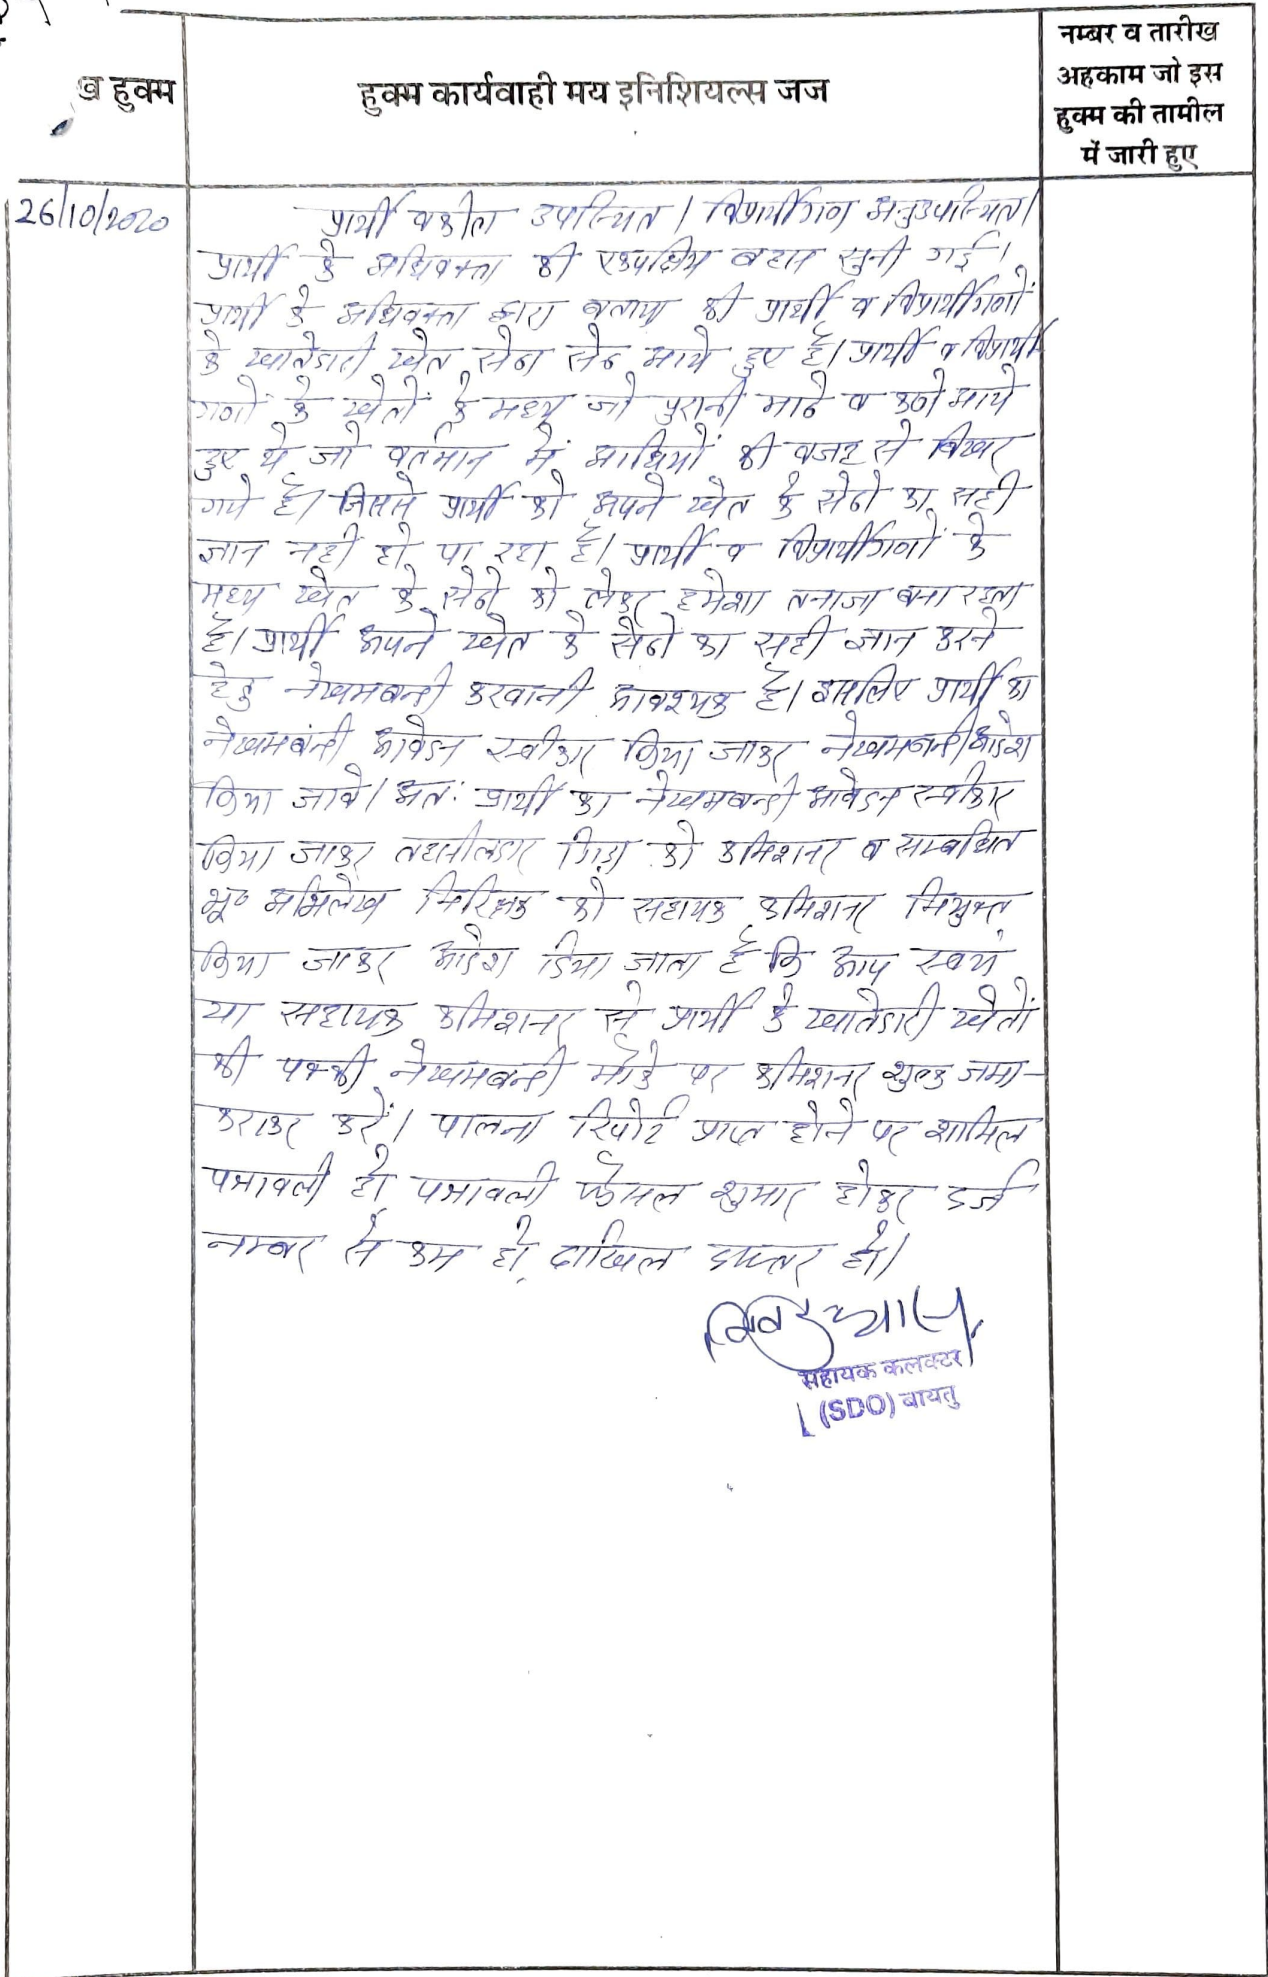 ख हुक्म
हुक्म कार्यवाही मय इनिशियल्स जज
नम्बर व तारीख
अहकाम जो इस
हुक्म की तामील
में जारी हुए
26/10/2020
प्रार्थी वकील उपस्थित। विप्रार्थीगण अनुउपस्थित।
प्रार्थी के अधिवक्ता की एकपक्षिय बहस सुनी गई।
प्रार्थी के अधिवक्ता द्वारा बताया की प्रार्थी व विप्रार्थीगणों
के खातेदारी खेत सेढा सेढ आये हुए है। प्रार्थी व विप्रार्थी
गणों के खेतों के मध्य जो पुरानी माठे व कणे आये
हुए थे जो वर्तमान में आंधियों की वजह से बिखर
गये है। जिससे प्रार्थी को अपने खेत के सेढो का सही
ज्ञान नही हो पा रहा है। प्रार्थी व विप्रार्थीगणों के
मध्य खेत के सेढो को लेकर हमेशा तनाजा बना रहता
है। प्रार्थी अपने खेत के सेढों का सही ज्ञान करने
हेतु नेखमबन्दी करवानी आवश्यक है। इसलिए प्रार्थी का
नेखमबंदी आवेदन स्वीकार किया जाकर नेखमबन्दी आदेश
किया जावे। अतः प्रार्थी का नेखमबन्दी आवेदन स्वीकार
किया जाकर तहसीलदार गिड़ा को कमिशनर व सम्बधित
भू० अभिलेख निरिक्षक को सहायक कमिशनर नियुक्त
किया जाकर आदेश दिया जाता है कि आप स्वयं
या सहायक कमिशनर से प्रार्थी के खातेदारी खेतों
की पक्की नेखमबन्दी मौके पर कमिशनर शुल्क जमा-
कराकर करें। पालना रिपोर्ट प्राप्त होने पर शामिल
पत्रावली हो पत्रावली फैसल शुमार होकर दर्ज
नम्बर से कम हो, दाखिल दफ्तर हो।
सहायक कलक्टर
(SDO) बायतु